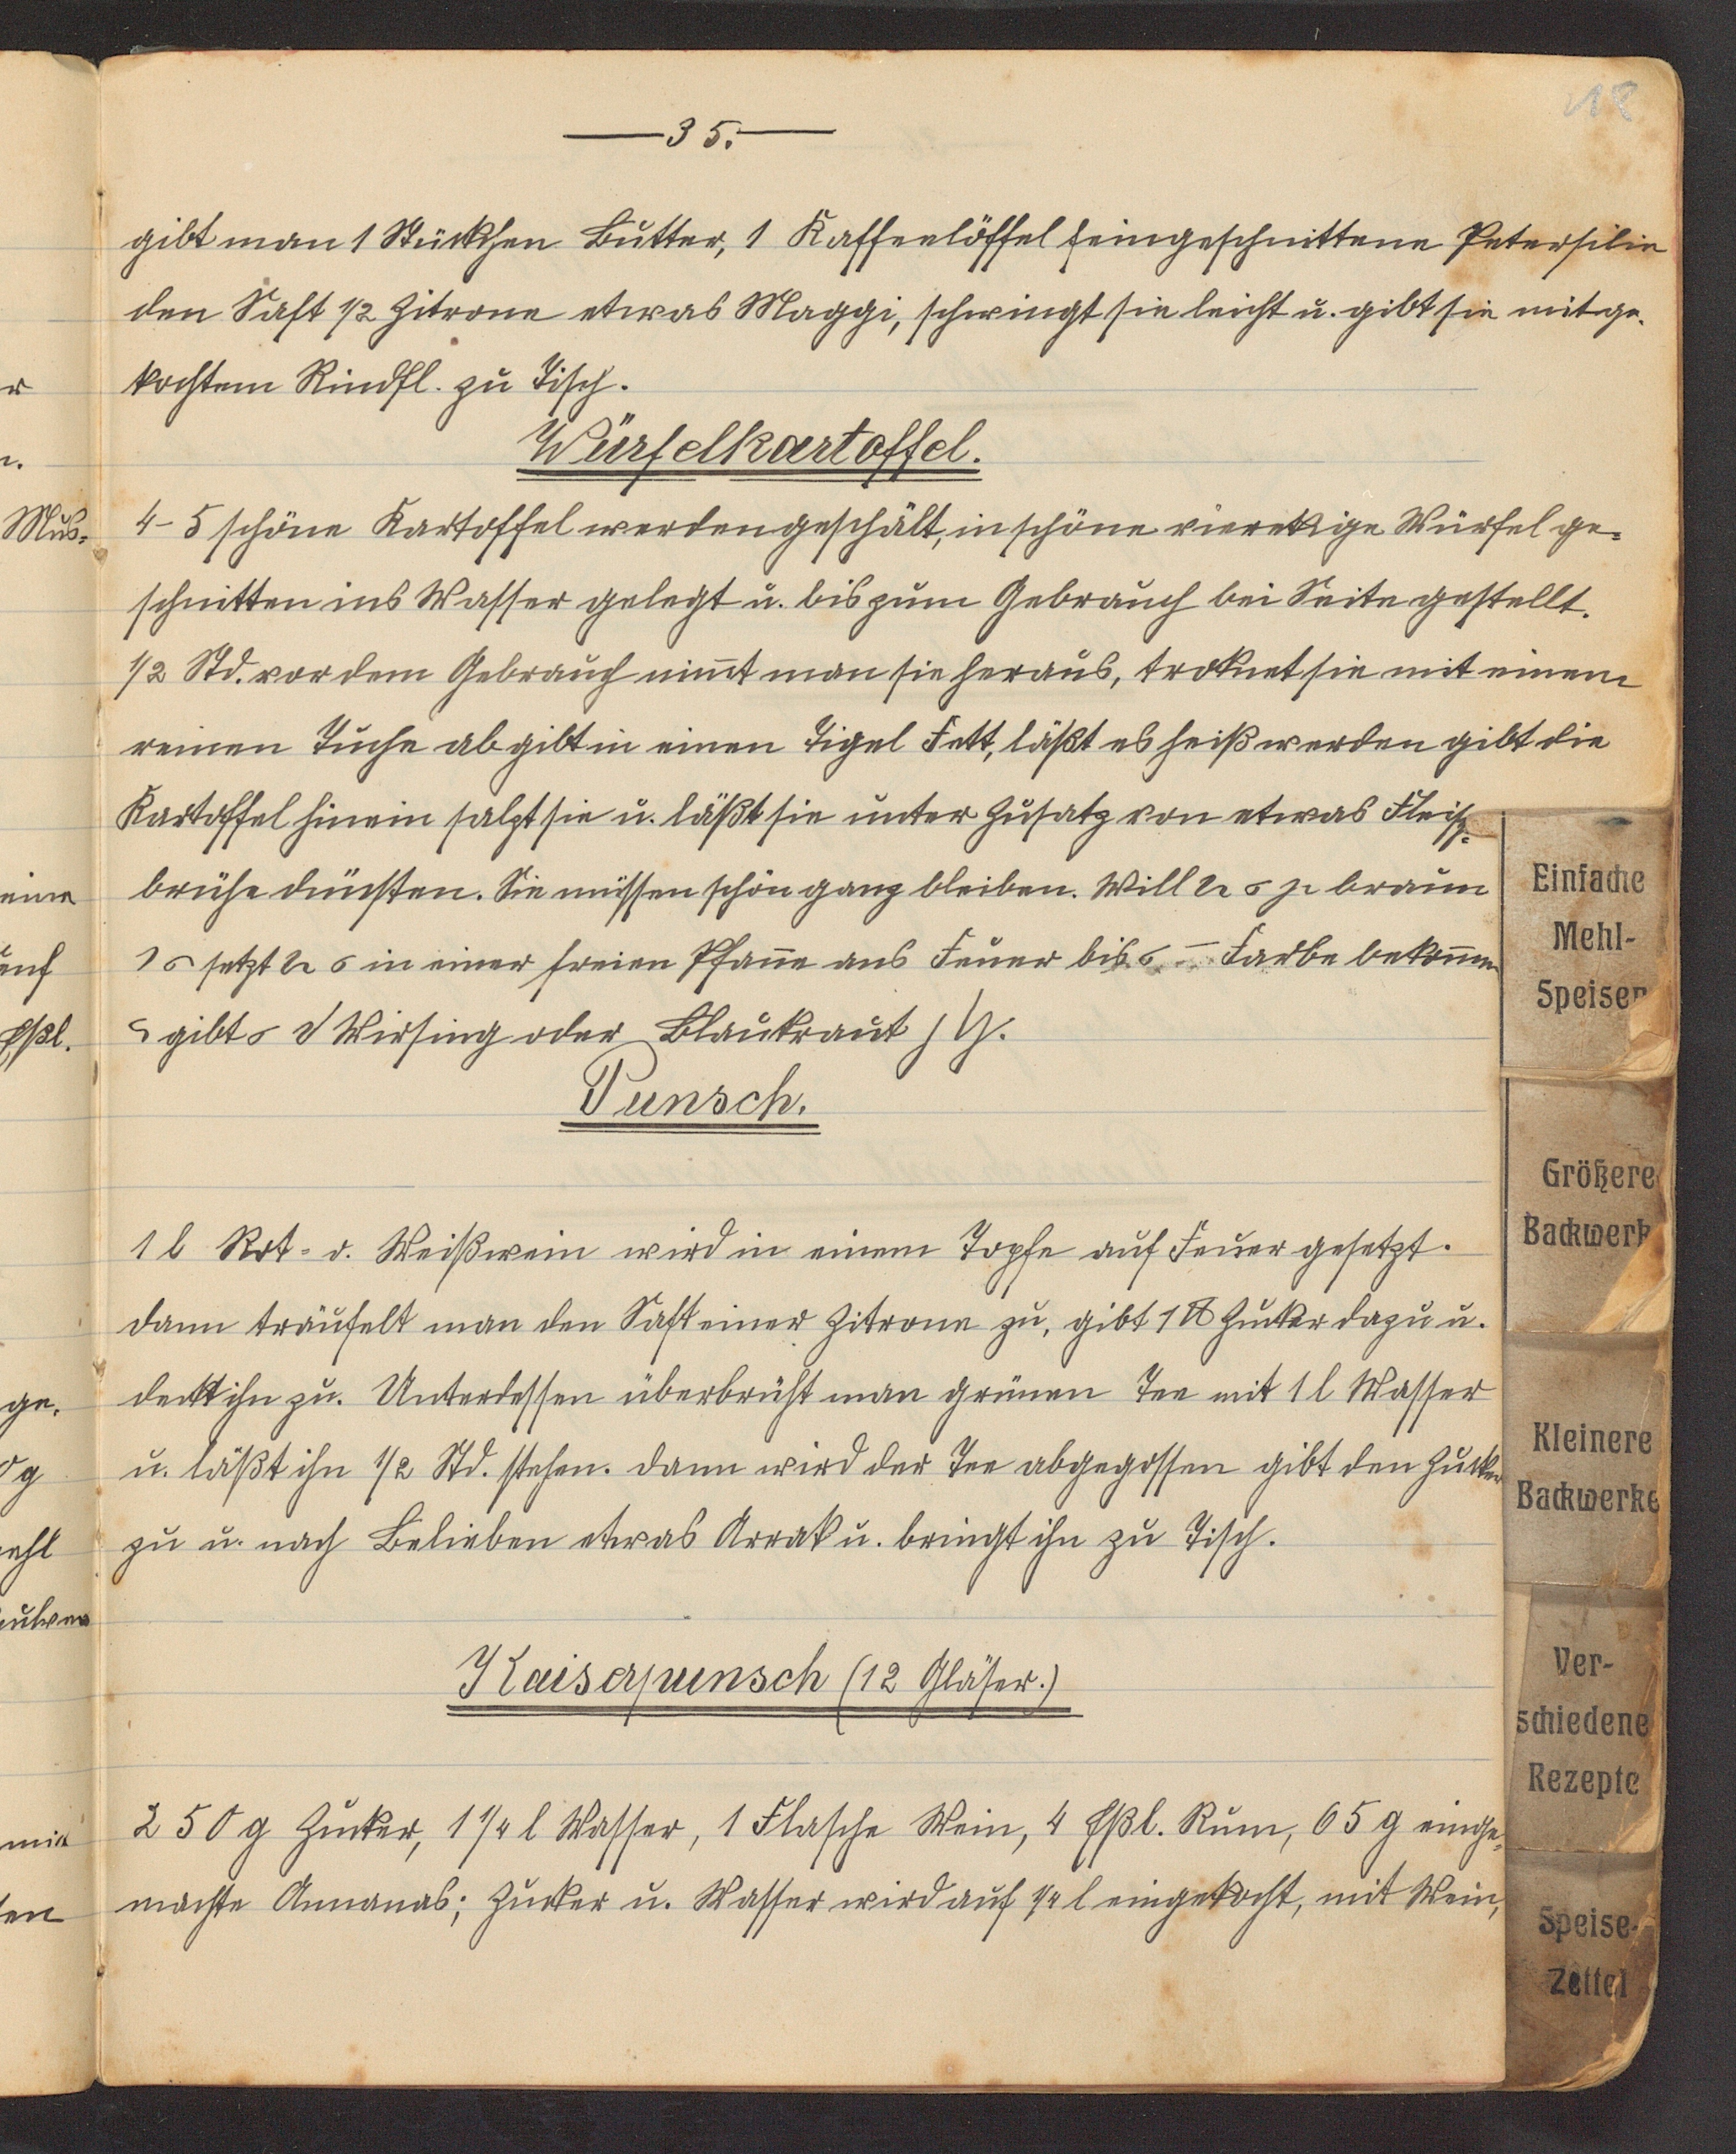 18
35.
gibt man 1 Stückchen Butter, 1 Kaffeelöffel feingeschnittene Petersilie
den Saft 1/2 Zitrone etwas Maggi, schwingt sie leicht u. gibt sie mit ge-
kochtem Rindfl. zu Tisch.
Würfelkartoffel.
4-5 schöne Kartoffel werden geschält, in schöne viereckige Würfel ge-
schnitten ins Wasser gelegt u. bis zum Gebrauch bei Seite gestellt.
1/2 Std. vor dem Gebrauch nim̄t man sie heraus, troknet sie mit einem
reinen Tuche ab gibt in einen Tigel Fett, läßt es heiß werden gibt die
Kartoffel hinein salzt sie u. läßt sie unter Zusatz von etwas Fleisch-
brühe dünsten. Sie müssen schön ganz bleiben. Will braun
setzt in einer freien Pfan̄e ans Feuer bis Farbe bekom̄en
gibt Wirsing oder Blaukraut
Punsch.
1 l Rot- o. Weißwein wird in einem Topfe auf Feuer gesetzt.
dann träufelt man den Saft einer Zitrone zu, gibt 1 ℔ Zucker dazu u.
deckt ihn zu. Unterdessen überbrüht man grünen Tee mit 1 l Wasser
u. läßt ihn 1/2 Std. stehen. dann wird der Tee abgegossen gibt den Zucker
zu u. nach Belieben etwas Arrak u. bringt ihn zu Tisch.
Kaiserpunsch (12 Gläser.)
250 g Zucker, 1 1/4 l Wasser, 1 Flasche Wein, 4 Eßl. Rum, 65 g einge-
machte Annanas; Zucker u. Wasser wird auf 1/4 l eingekocht, mit Wein,
r
n.
Mus-
eine
auf
Eßl.
ge-
0 g
mehl
pulver
mit
ten
Einfache
Mehl-
Speisen
Größere
Backwerk
Kleinere
Backwerke
Ver-
schiedene
Rezepte
Speise-
Zettel